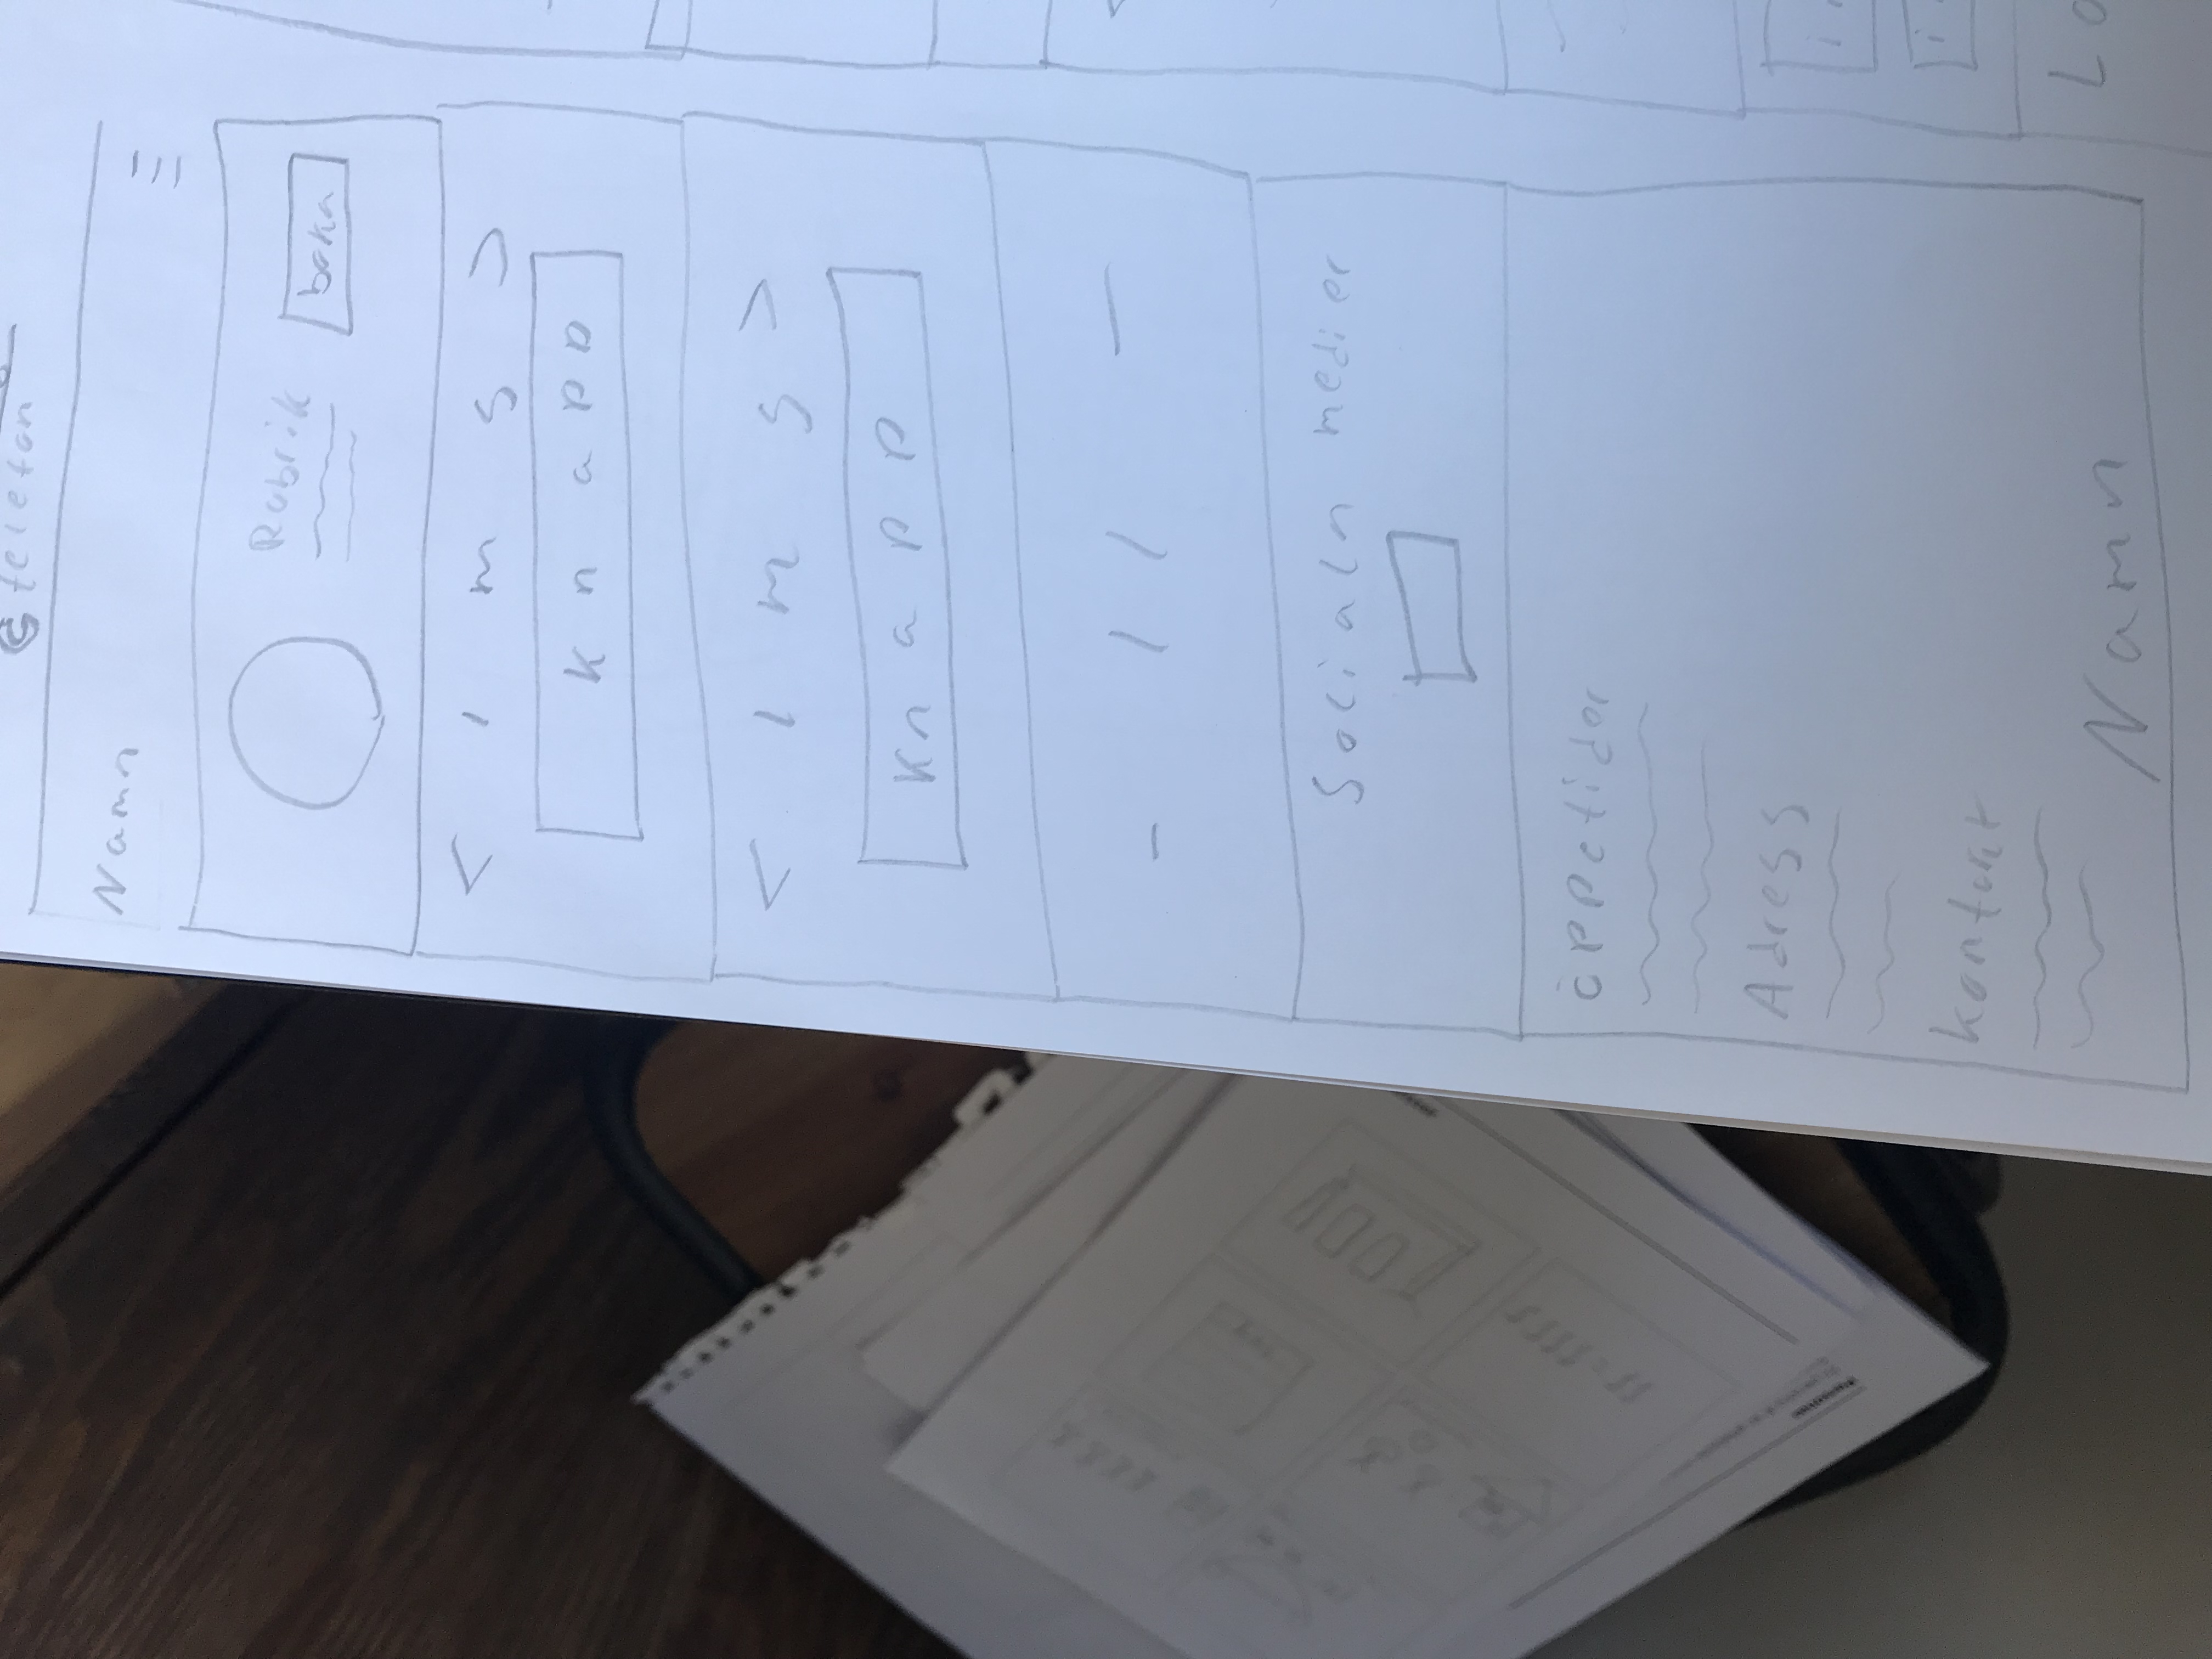 telefon
Namn
Rubrik
boka
< 1 m g >
knapp
< 1 m g >
knapp
- / / -
Socialn medier
öppetider
Adress
Kontakt
Namn
Lo